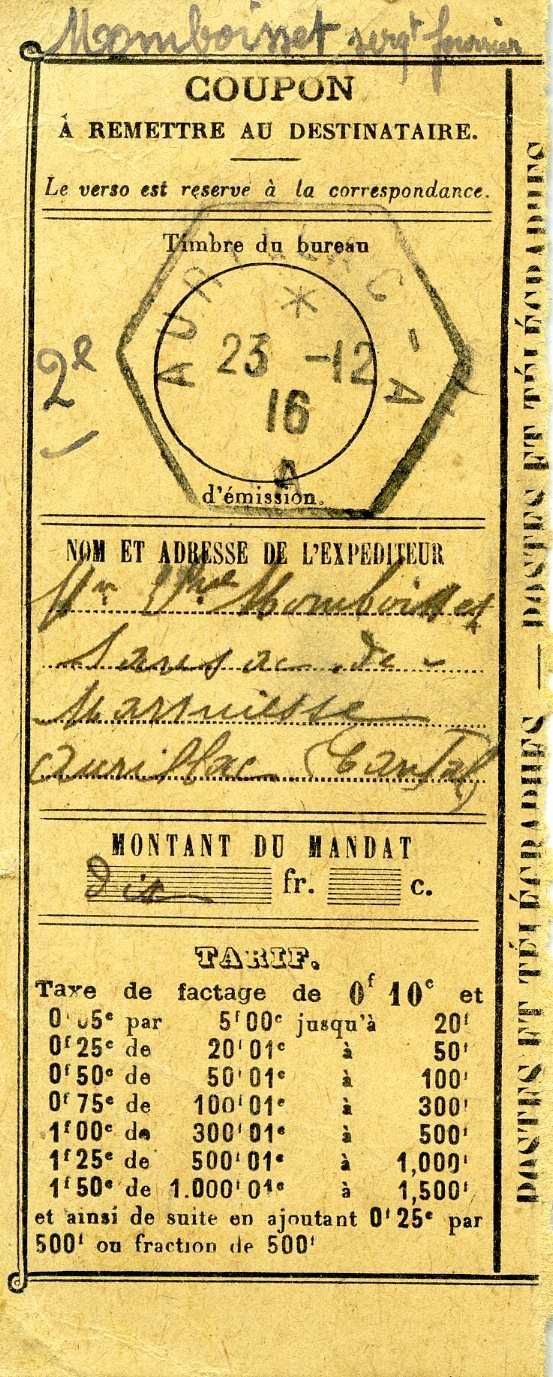 Momboisset sergt fourrier
COUPON
À REMETTRE AU DESTINATAIRE.
Le verso est réservé à la correspondance.
Timbre du bureau
AURILLAC - A
*
23 -12
16
A
2e
d'émission.
NOM ET ADRESSE DE L'EXPÉDITEUR
Mr Momboisset
Sansac de
Marmiesse
Aurillac (Cantal)
MONTANT DU MANDAT
dix fr. c.
TARIF.
Taxe de factage de 0f 10c et
0f05c par 5f00c jusqu'à 20f
0f25c de 20f01c à 50f
0f50c de 50f01c à 100f
0f75c de 100f01c à 300f
1f00c de 300f01c à 500f
1f25c de 500f01c à 1,000f
1f50c de 1.000f01c à 1,500f
et ainsi de suite en ajoutant 0f25c par
500f ou fraction de 500f
POSTES ET TÉLÉGRAPHES — POSTES ET TÉLÉGRAPHES